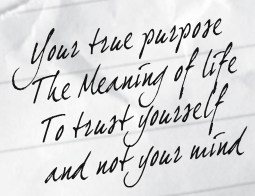 Your true purpose
The Meaning of life
To trust yourself
and not your mind